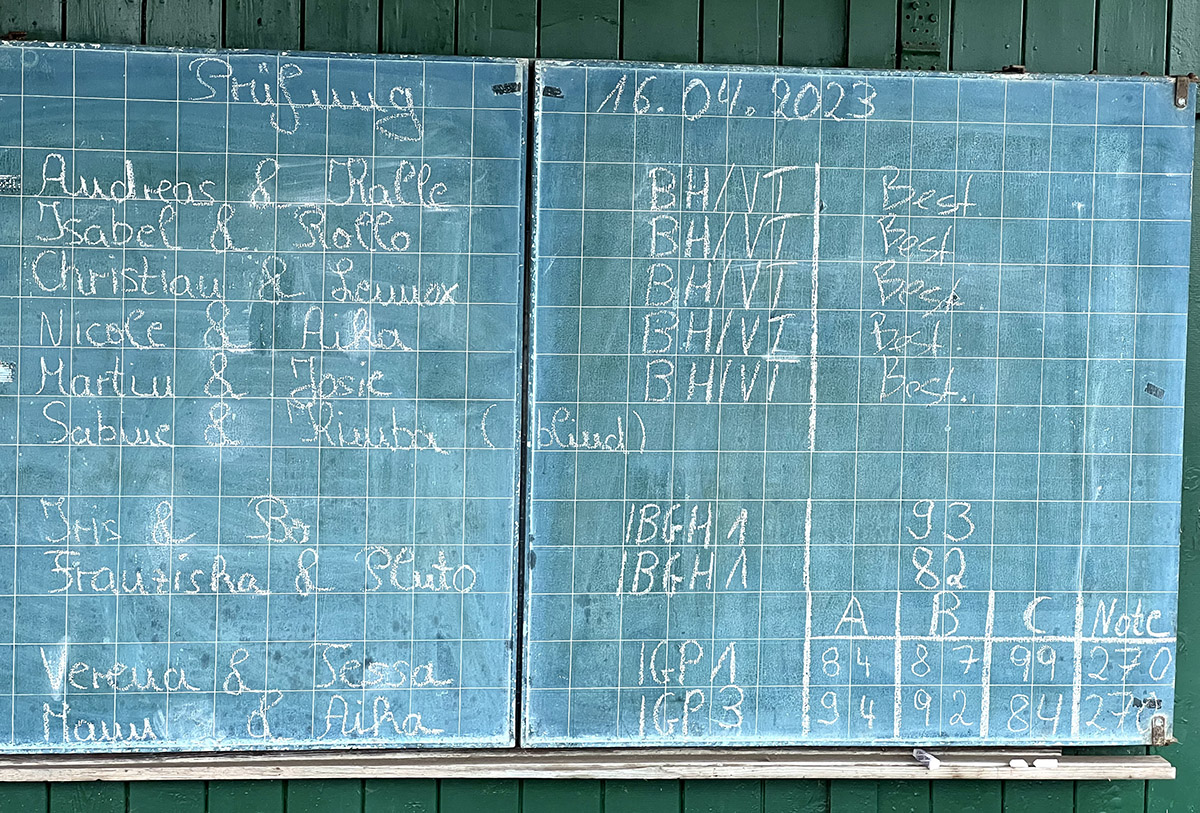 Prüfung 16.04.2023
Andreas & Kalle BH/VT Best.
Isabel & Rollo BH/VT Best
Christian & Lennox BH/VT Best.
Nicole & Aika BH/VT Best.
Martin & Josie BH/VT Best.
Sabine & Kimba (blind)
Iris & Bo IBGH 1 93
Franziska & Pluto IBGH 1 82
A B C Note
Verena & Tessa IGP 1 84 87 99 270
Manu & Aika IGP 3 94 92 84 270